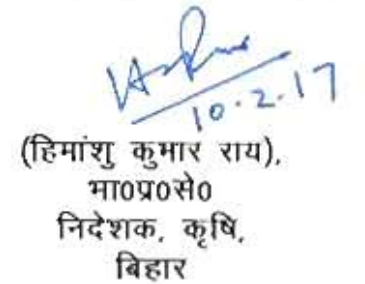 10.2.17
(हिमांशु कुमार राय),
भा०प्र०से०
निदेशक, कृषि,
बिहार